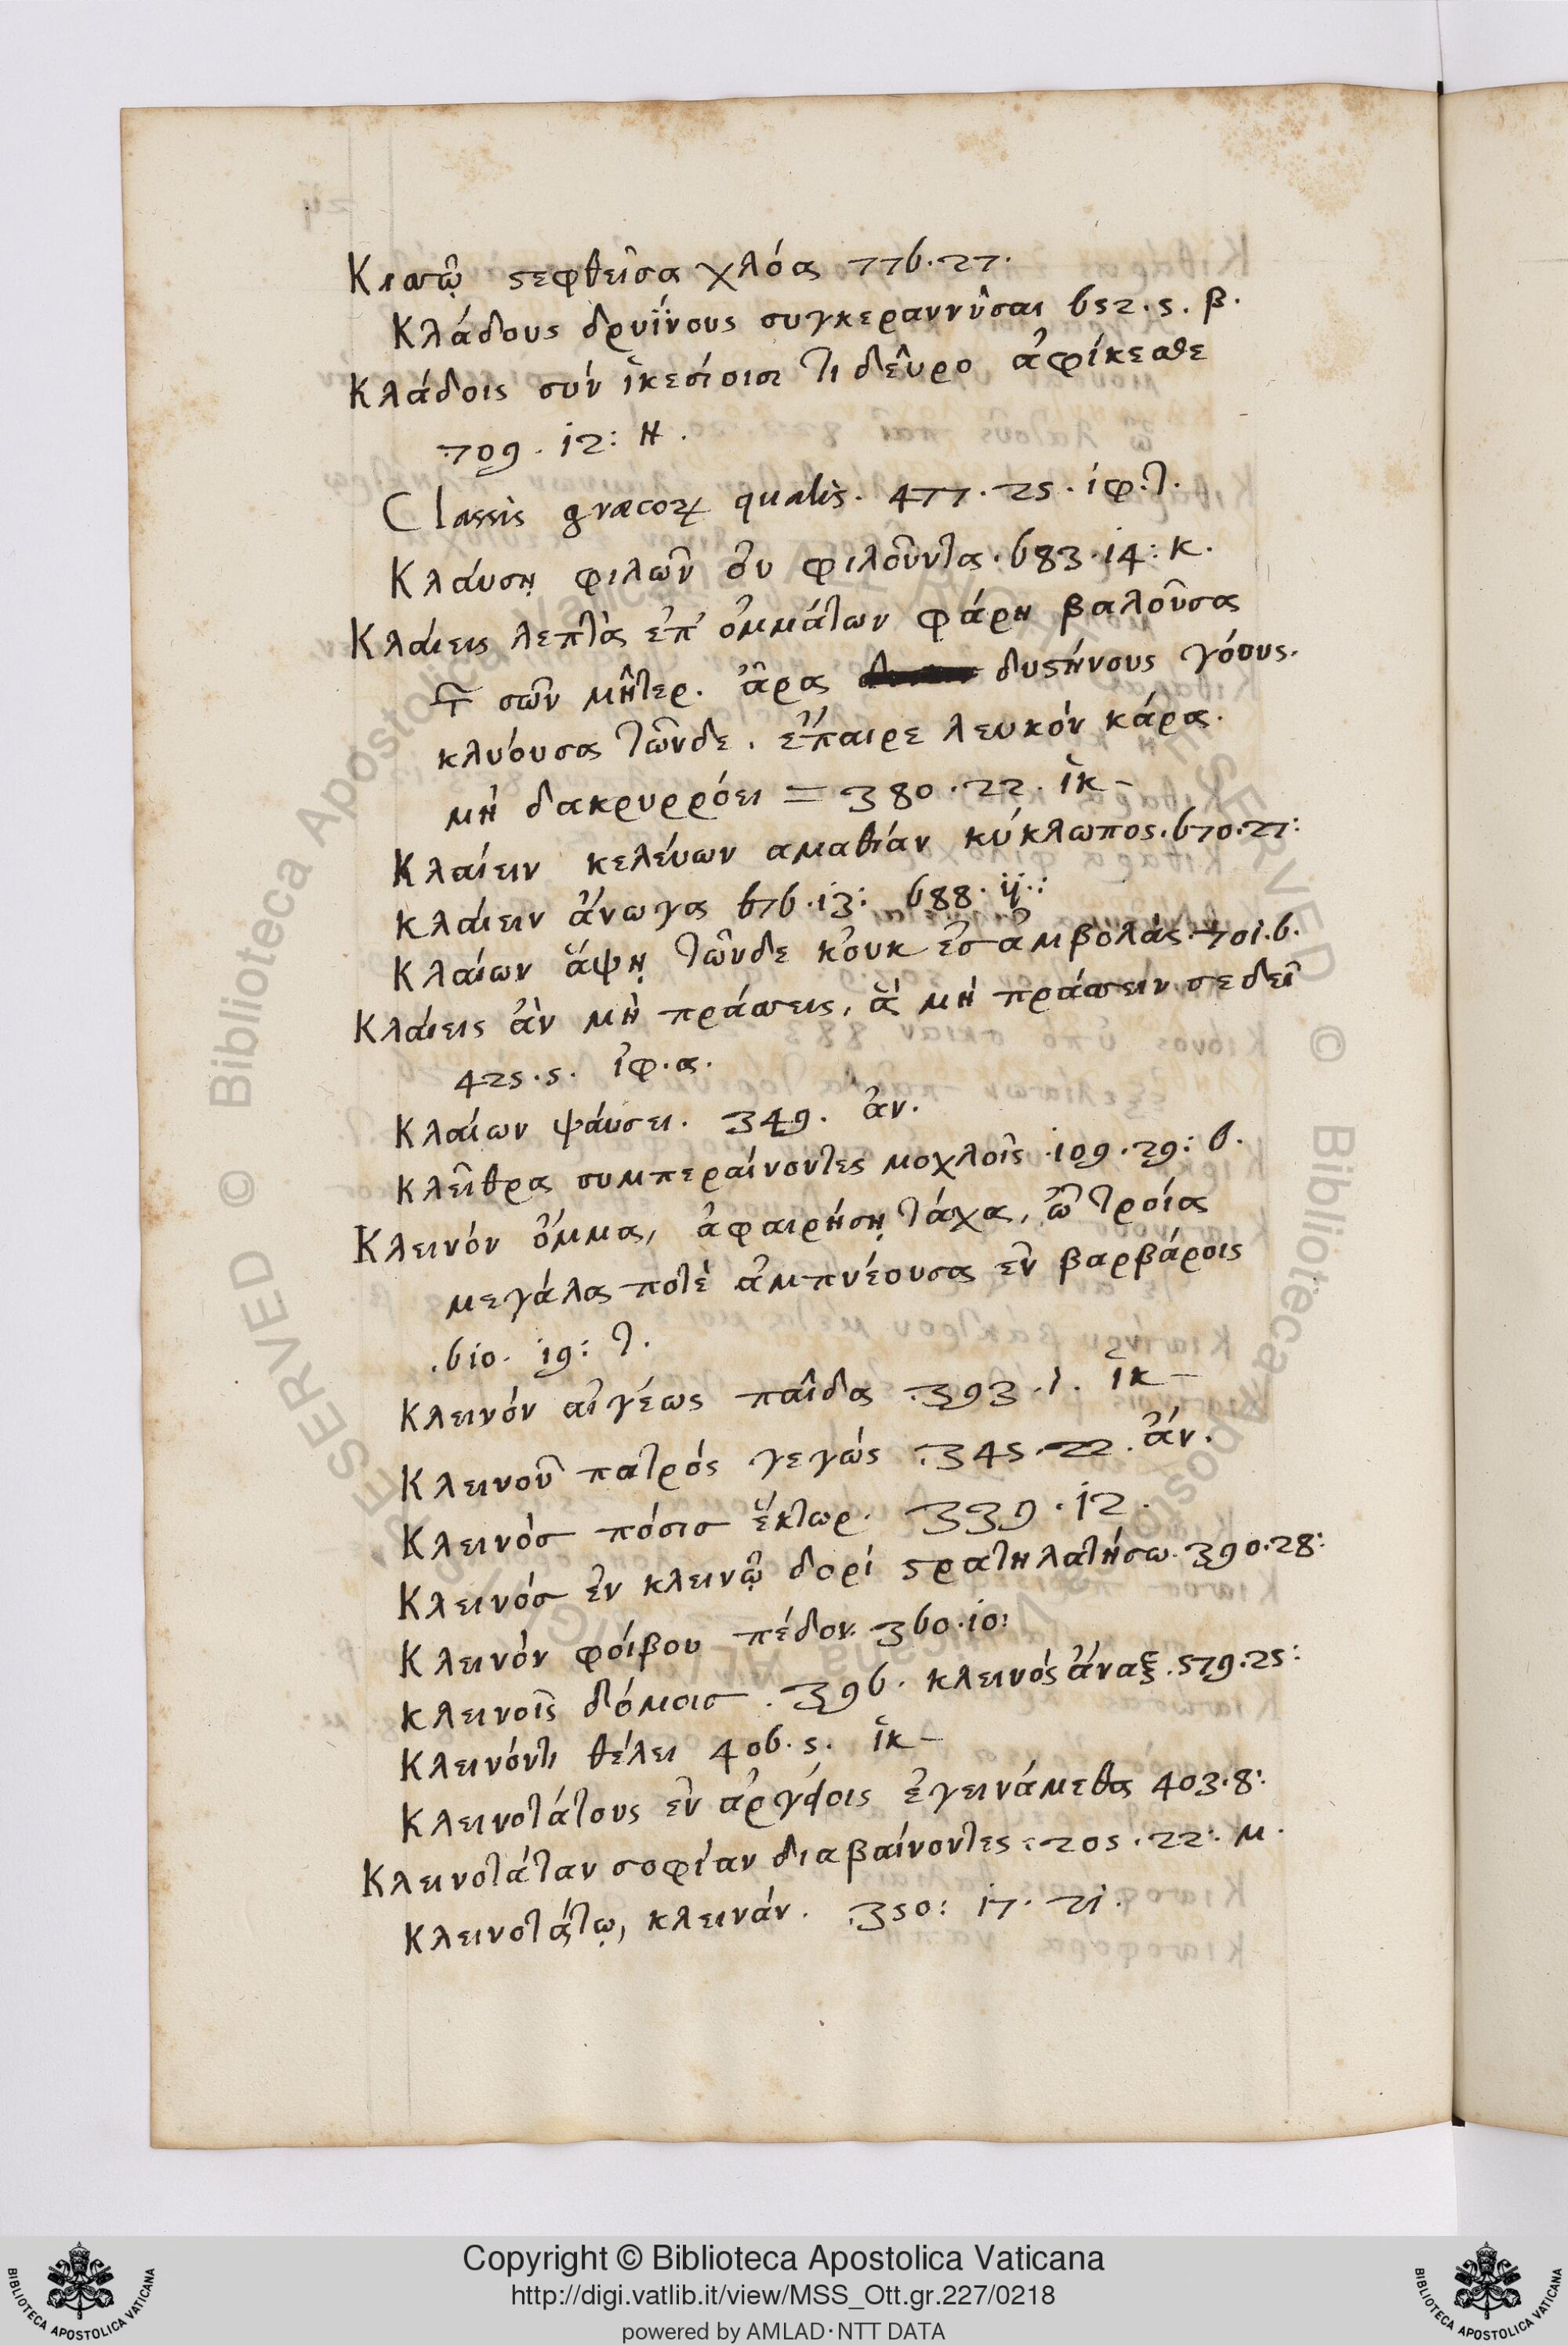 Κισσῷ στεφθεῖσα χλόα 776.27.
Κλάδους δρυΐνους συγκεραννῦσαι 652.5. β.
Κλάδοις σύν ἱκεσίοισι τι δεῦρο ἀφίκεσθε
709. 12: Η.
Classis græcorum qualis. 477. 25. ἰφ. τ.
Κλάυσῃ φιλῶν ὀυ φιλοῦντα. 683. 14: κ.
Κλάιεις λεπτὰ ἐπ' ὀμμάτων φάρη βαλοῦσα
σῶν μῆτερ. ἆρα δυστήνους γόους.
κλυόυσα τῶνδε. ἔπαιρε λευκόν κάρα.
μὴ δακρυρρόει = 380. 22. ἱκ-
Κλαίειν κελέυων αμαθίαν κύκλωπος. 670. 27:
κλάιειν ἄνωγα 676. 13: 688. ij.:
Κλαίων ἅψῃ τῶνδε κὀυκ ἐσ ἀμβολάς. 701. 6.
Κλάιεις ἂν μὴ πράσσεις, ἃ μὴ πράσσειν σε δεῖ
425. 5. ἰφ. α.
Κλαίων ψάυσει. 349. ἀν.
Κλεῖθρα συμπεραίνοντες μοχλοῖς 109. 29: 6.
Κλεινόν ὄμμα, ἀφαιρήσῃ τάχα, ὦ τροία
μεγάλα ποτὲ ἀμπνέουσα ἐν βαρβάροις
.610. 19: τ.
Κλεινόν αἰγέως παῖδα .393. 1. ἱκ-
Κλεινοῦ πατρός γεγώς .345. 22. ἄν.
Κλεινὸσ πόσισ ἕκτωρ. 339. 12.
Κλεινός ἐν κλεινῷ δορί στρατηλατήσω. 390. 28:
Κλεινὸν φόιβου πέδον. 360. 10:
κλεινοῖς δόμοισ. 396. κλεινός ἄναξ. 579. 25:
Κλεινόντι θέλει 406. 5. ἱκ-
Κλεινοτάτους ἐν ἀργόις ἐγεινάμεθα 403. 8:
Κλεινοτάταν σοφίαν διαβαίνοντες: 205. 22: μ.
Κλεινοτάτῳ, κλεινάν. .350: 17. 21.
Copyright © Biblioteca Apostolica Vaticana
http://digi.vatlib.it/view/MSS_Ott.gr.227/0218
powered by AMLAD·NTT DATA